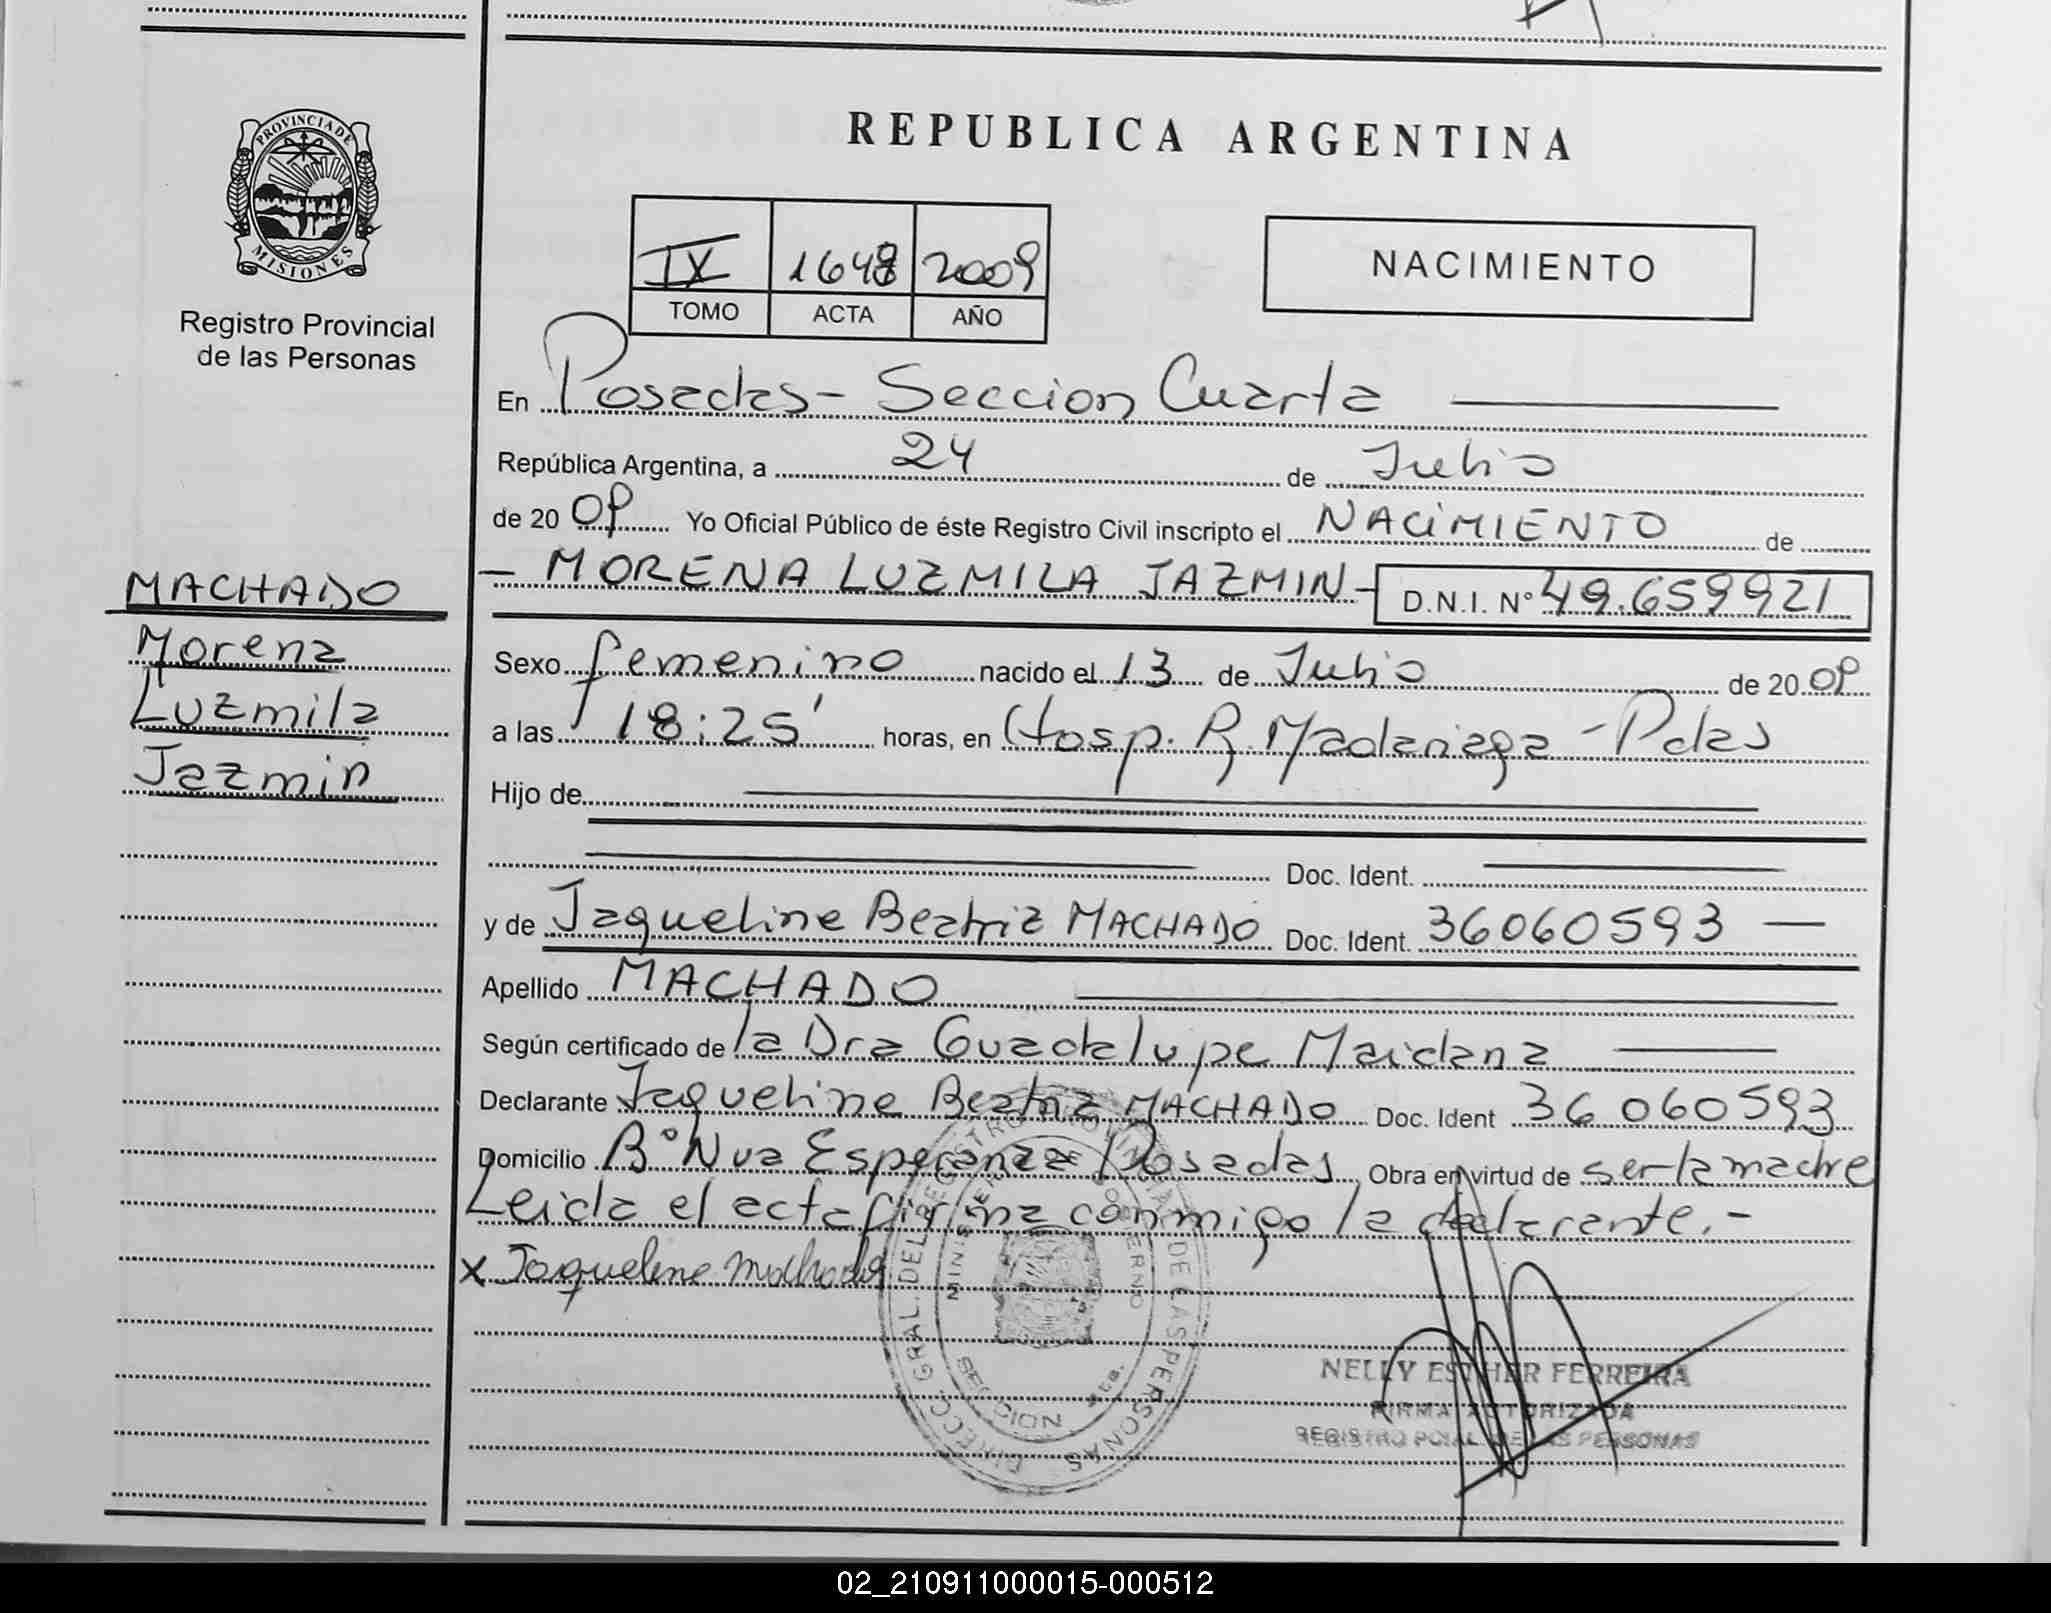 REPUBLICA ARGENTINA
PROVINCIA DE
MISIONES
Registro Provincial
de las Personas
IX 1648 2009
TOMO ACTA AÑO
NACIMIENTO
En Posadas - Seccion Cuarta
República Argentina, a 24 de Julio
de 20 09 Yo Oficial Público de éste Registro Civil inscripto el NACIMIENTO de
- MORENA LUZMILA JAZMIN - D.N.I. N° 49.659921
MACHADO
Morena
Luzmila
Jazmin
Sexo femenino nacido el 13 de Julio de 20 09
a las 18:25' horas, en Hosp. R. Madariaga - Pdas
Hijo de
Doc. Ident.
y de Jaqueline Beatriz MACHADO Doc. Ident. 36060593 —
Apellido MACHADO
Según certificado de la Dra Guadalupe Maidana
Declarante Jaqueline Beatriz MACHADO Doc. Ident 36 060593
Domicilio B° Nva Esperanza Posadas Obra en virtud de ser la madre
Leida el acta firma conmigo la declarante.-
x Jaqueline Machado
NELLY ESTHER FERREIRA
FIRMA AUTORIZADA
REGISTRO PCIAL DE LAS PERSONAS
DIRECC. GRAL. DEL REGISTRO PROVINCIAL DE LAS PERSONAS
MINISTERIO DE GOBIERNO
SECCION 4ta.
02_210911000015-000512